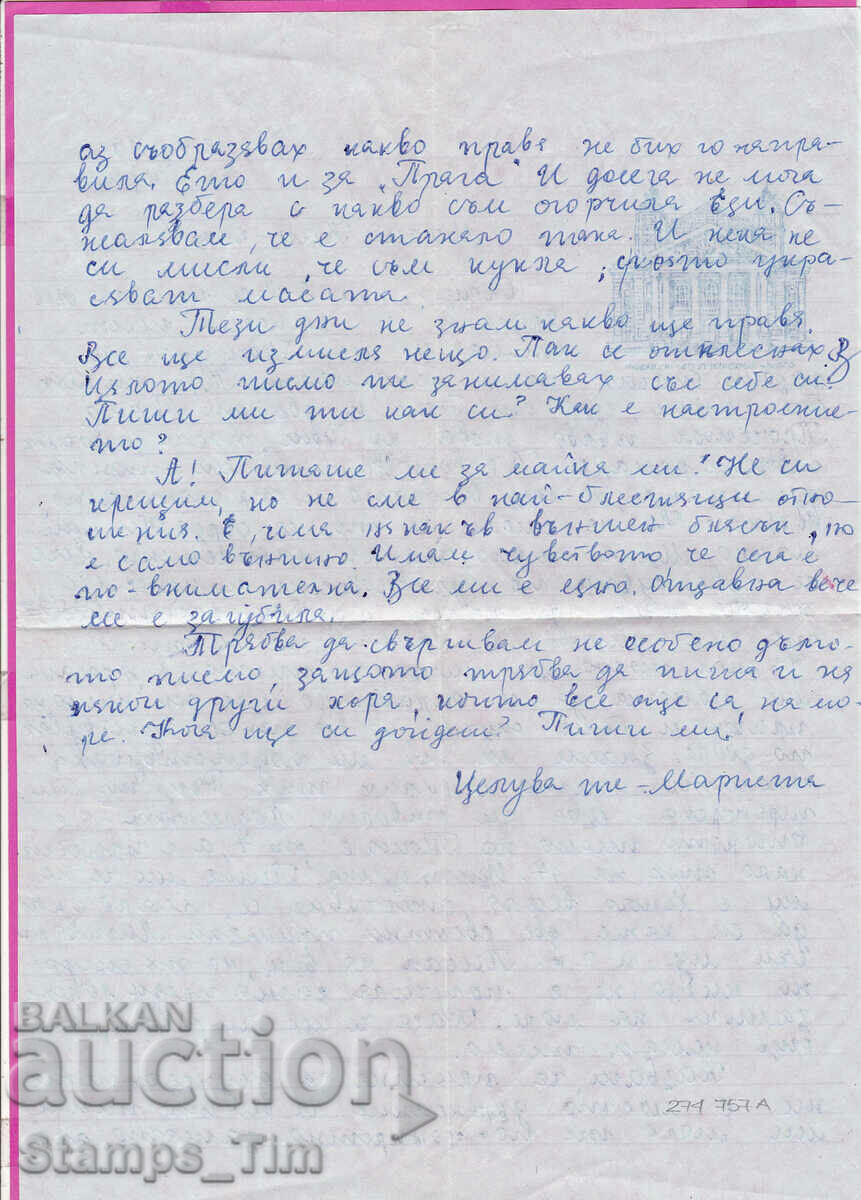 аз съобразявах какво правя не бих го напра-
вила. Ето и за "Прага" И досега не мога
да разбера с какво съм огорчила Еди. Съ-
жалявам, че е станало така. И нека не
си мисли, че съм кукла, с която укра-
сяват масата.
Тези дни не знам какво ще правя.
Все ще измисля нещо. Пак се отплеснах. В
цялото писмо те занимавах със себе си.
Пиши ми ти как си? Как е настроение-
то?
А! Питаше ли за майка ми? Не си
крещим, но не сме в най-блестящи отно-
шения. Е, има някакъв външен блясък, но
е само външно. Имам чувството, че сега е
по-внимателна. Все ми е едно. Отдавна вече
ме е загубила.
Трябва да свършвам не особено дълго-
то писмо, защото трябва да пиша и на
някои други хора, които все още са на мо-
ре. Кога ще си дойдеш? Пиши ми!
Целува те - Мариета
BALKAN
auction
Stamps_Tim
274 757A